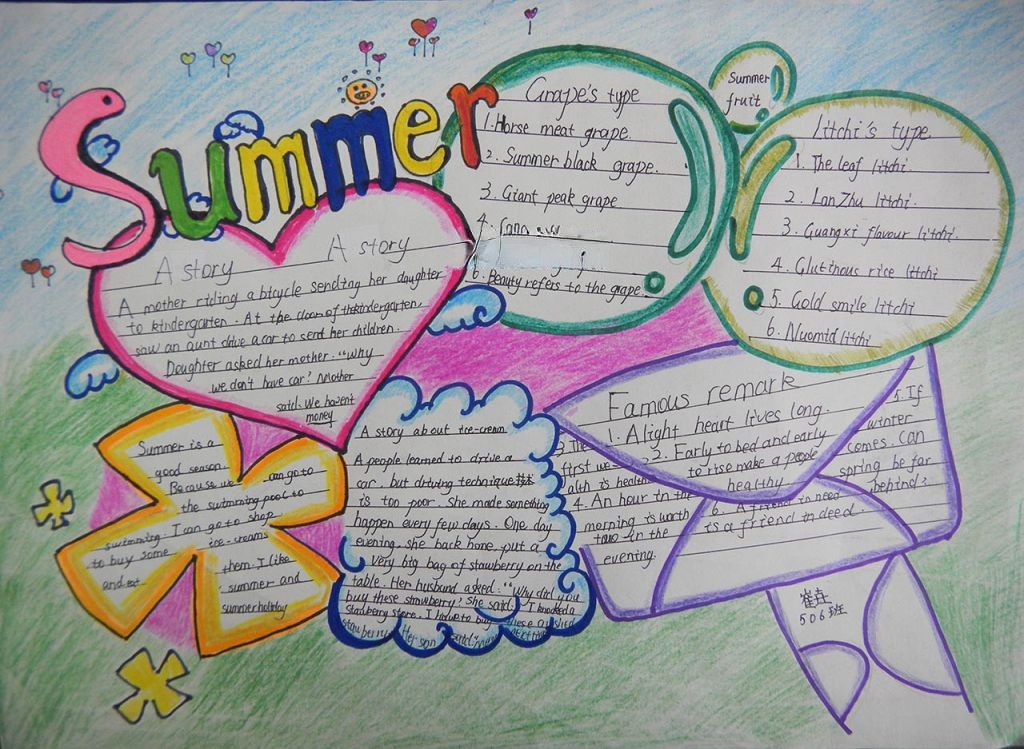 Summer
Grape's type
1. Horse meat grape.
2. Summer black grape.
3. Giant peak grape
4.
6. Beauty refers to the grape.
Summer
fruit
litchi's type
1. The leaf litchi
2. LanZhu litchi.
3. Guangxi flavour litchi.
4. Glutinous rice litchi
5. Gold smile litchi
6. Nuomid litchi
A story A story
A mother riding a bicycle sending her daughter
to kindergarten. At the door of the kindergarten,
saw an aunt drive a car to send her children.
Daughter asked her mother. "Why
we don't have car? Mother
said. We haven't
money
Summer is a
good season.
Because we can go to
the swimming pool to
swimming. I can go to shop
to buy some ice-creams
and eat them. I like
summer and
summer holiday
A story about ice-cream
A people learned to drive a
car. but driving technique
is too poor. She made something
happen every few days. One day
evening, she back home, put a
very big bag of stawberry on the
table. Her husband asked: "Why did you
buy these strawberry? She said: I knocked a
strawberry store. I have to buy these
strawberry Her son said:
Famous remark
1. A light heart lives long.
2. Early to bed and early
to rise make a people
healthy
3. The
first we
alth is health
4. An hour in the
morning is worth
two in the
evening.
5. If
winter
comes can
spring be far
behind?
6. A friend in need
is a friend in deed.
506班